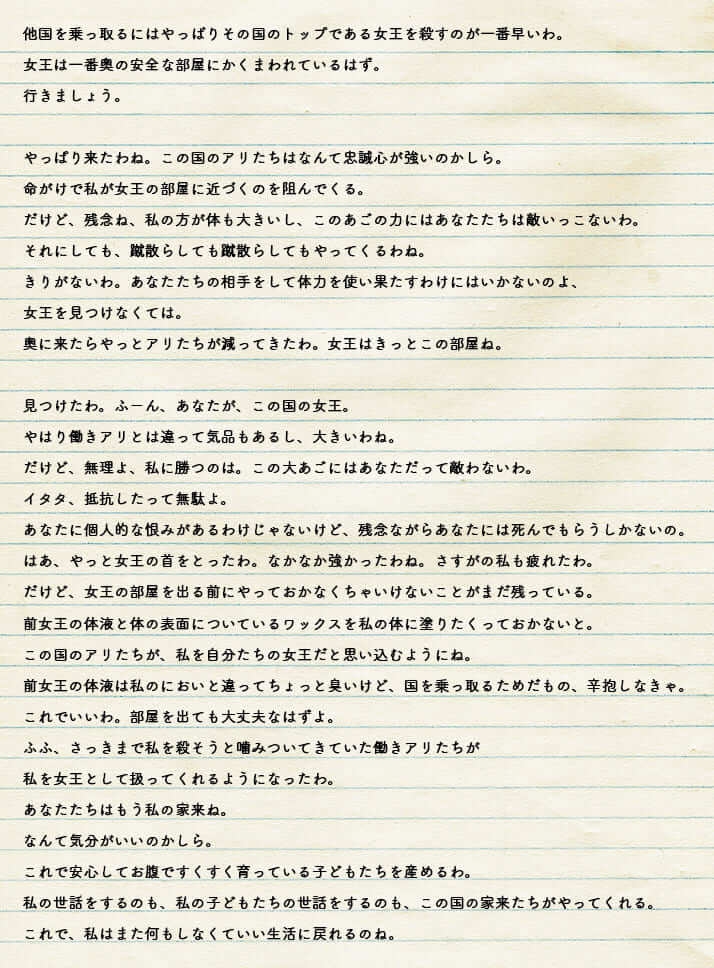 他国を乗っ取るにはやっぱりその国のトップである女王を殺すのが一番早いわ。
女王は一番奥の安全な部屋にかくまわれているはず。
行きましょう。
やっぱり来たわね。この国のアリたちはなんて忠誠心が強いのかしら。
命がけで私が女王の部屋に近づくのを阻んでくる。
だけど、残念ね、私の方が体も大きいし、このあごの力にはあなたたちは敵いっこないわ。
それにしても、蹴散らしても蹴散らしてもやってくるわね。
きりがないわ。あなたたちの相手をして体力を使い果たすわけにはいかないのよ、
女王を見つけなくては。
奥に来たらやっとアリたちが減ってきたわ。女王はきっとこの部屋ね。
見つけたわ。ふーん、あなたが、この国の女王。
やはり働きアリとは違って気品もあるし、大きいわね。
だけど、無理よ、私に勝つのは。この大あごにはあなただって敵わないわ。
イタタ、抵抗したって無駄よ。
あなたに個人的な恨みがあるわけじゃないけど、残念ながらあなたには死んでもらうしかないの。
はあ、やっと女王の首をとったわ。なかなか強かったわね。さすがの私も疲れたわ。
だけど、女王の部屋を出る前にやっておかなくちゃいけないことがまだ残っている。
前女王の体液と体の表面についているワックスを私の体に塗りたくっておかないと。
この国のアリたちが、私を自分たちの女王だと思い込むようにね。
前女王の体液は私のにおいと違ってちょっと臭いけど、国を乗っ取るためだもの、辛抱しなきゃ。
これでいいわ。部屋を出ても大丈夫なはずよ。
ふふ、さっきまで私を殺そうと噛みついてきていた働きアリたちが
私を女王として扱ってくれるようになったわ。
あなたたちはもう私の家来ね。
なんて気分がいいのかしら。
これで安心してお腹ですくすく育っている子どもたちを産めるわ。
私の世話をするのも、私の子どもたちの世話をするのも、この国の家来たちがやってくれる。
これで、私はまた何もしなくていい生活に戻れるのね。